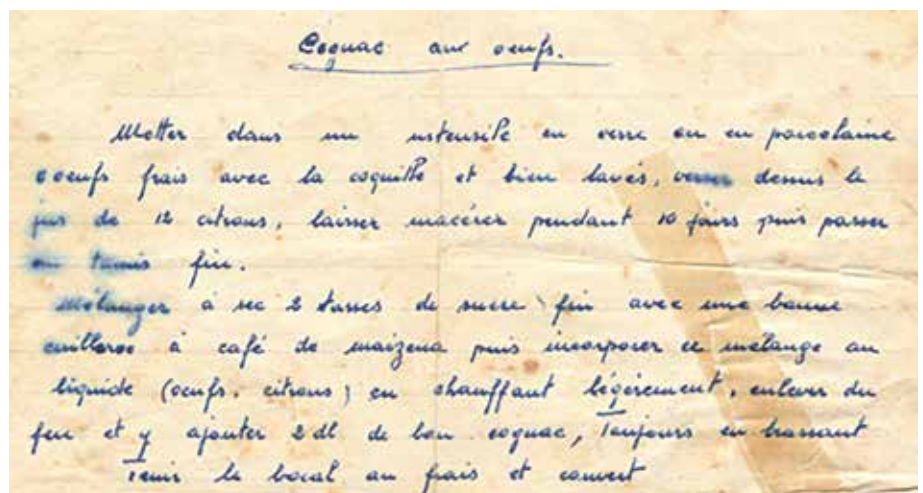 Cognac aux oeufs.
Metter dans un ustensile en verre ou en porcelaine
oeufs frais avec la coquille et bien lavés, verser dessus le
jus de 12 citrons, laisser macérer pendant 10 jours puis passer
au tamis fin.
Mélanger à sec 2 tasses de sucre fin avec une bonne
cuilleree à café de maizena puis incorporer ce mélange au
liquide (oeufs. citrons) en chauffant légèrement, enlever du
feu et y ajouter 2 dl de bon cognac, Toujours en brassant
Tenir le bocal au frais et couvert